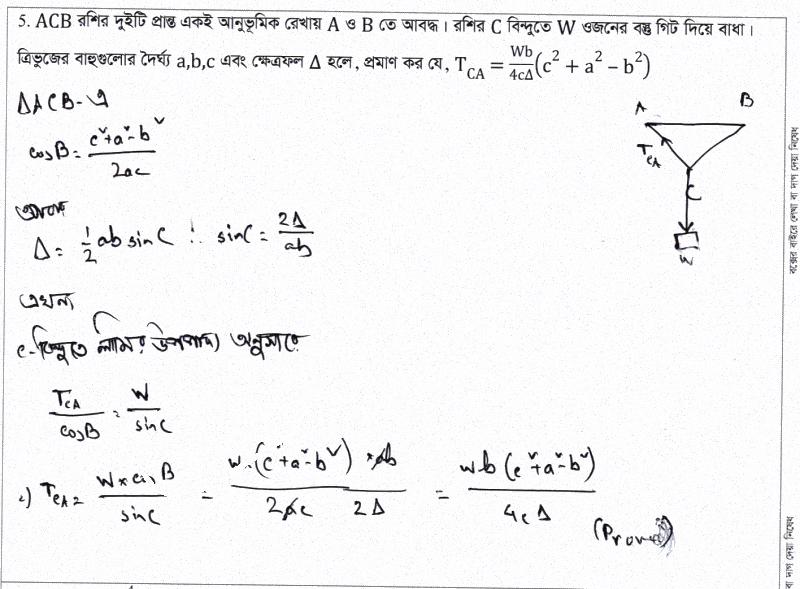 5. ACB রশির দুইটি প্রান্ত একই আনুভূমিক রেখায় A ও B তে আবদ্ধ। রশির C বিন্দুতে W ওজনের বস্তু গিট দিয়ে বাধা।
ত্রিভুজের বাহুগুলোর দৈর্ঘ্য a,b,c এবং ক্ষেত্রফল Δ হলে, প্রমাণ কর যে, T_CA = Wb/4cΔ (c² + a² − b²)
ΔACB-এ
cosB = c²+a²-b² / 2ac
আবার
Δ = 1/2 ab sinC ∴ sinC = 2Δ/ab
এখন
c-বিন্দুতে লামির উপপাদ্য অনুসারে
T_CA / cosB = W / sinC
∴) T_CA = W×cosB / sinC = W.(c²+a²-b²) × ab / 2ac 2Δ = Wb (c²+a²-b²) / 4cΔ
(Proved)
A
B
T_CA
C
W
বক্সের বাইরে লেখা বা দাগ দেয়া নিষেধ
বা দাগ দেয়া নিষেধ